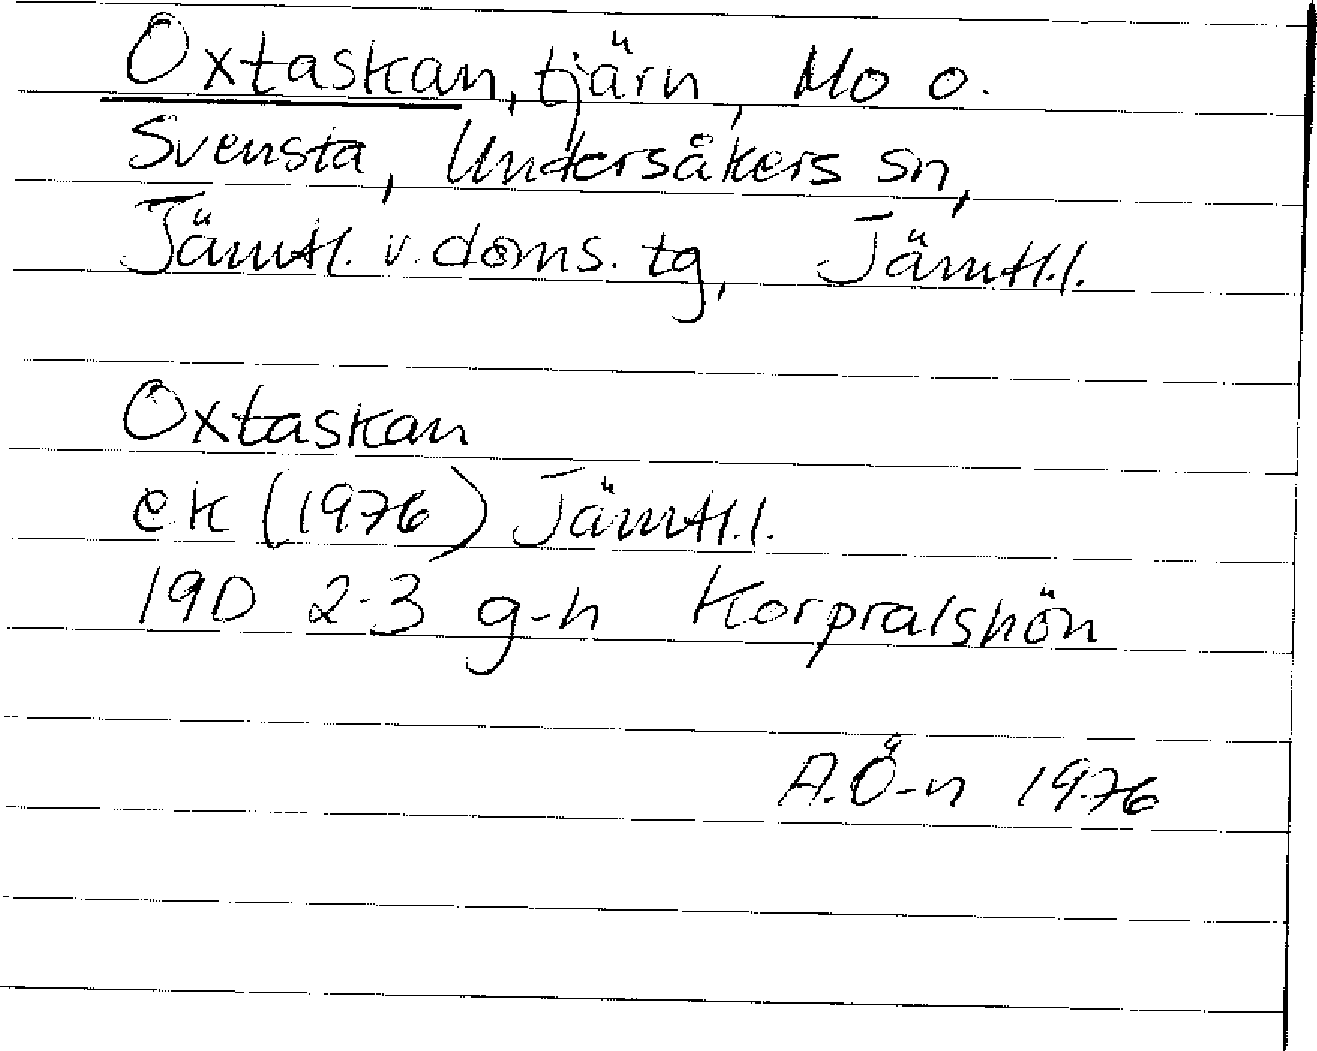 Oxtaskan, tjärn, Mo o.
Svensta, Undersåkers sn,
Jämtl. v. doms. tg, Jämtl.l.
Oxtaskan
ek (1976) Jämtl.l.
19D 2-3 g-h Korpralshön
A.Ö-n 1976